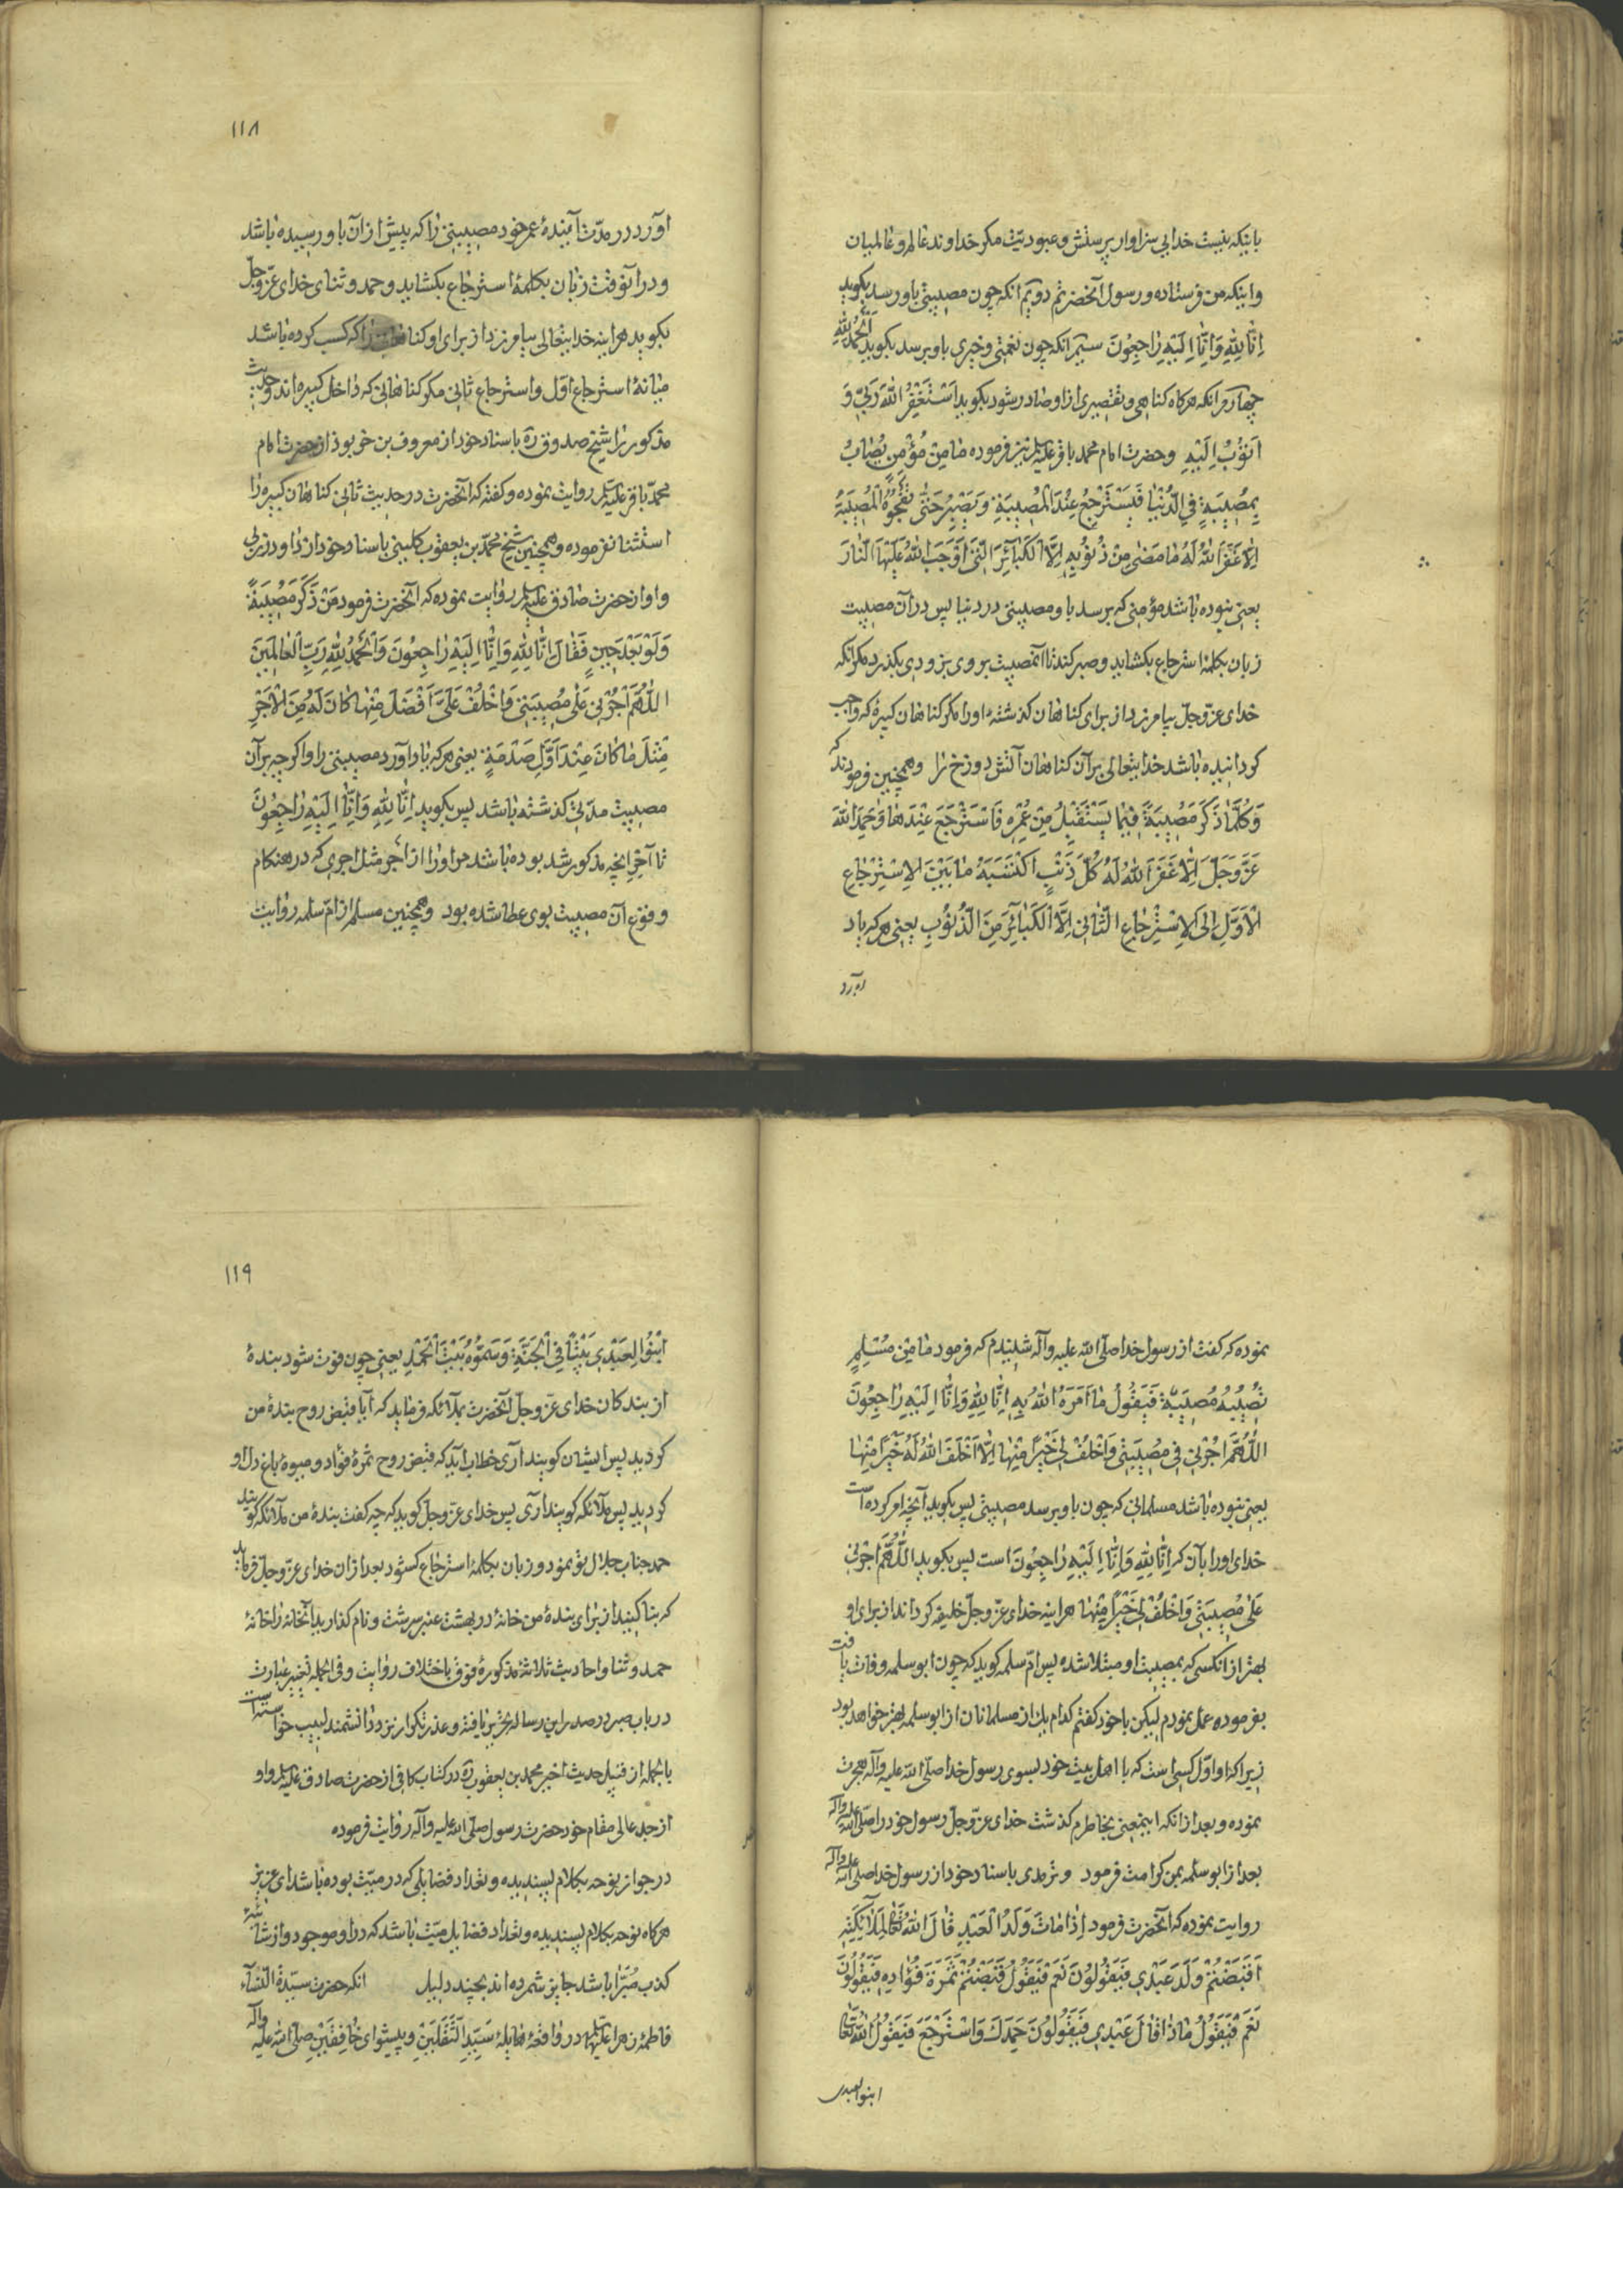 باینکه نیست خدایی سزاوار پرستش و عبودیّت مکر خداوند عالم و عالمیان
و اینکه من فرستاده و رسول آنحضرتم دویّم انکه چون مصیبتی باو رسد بکوید
اِنّا لِلّٰهِ وَاِنّٰا اِلَیْهِ رٰاجِعُونَ سیّم انکه چون نعمتی و خیری باو برسد بکوید اَلْحَمْدُ لِلّٰهِ
چهارم انکه هرکاه کناهی و تقصیری از او صادر شود بکوید اَسْتَغْفِرُ اللّٰهَ رَبّی وَ
اَتُوْبُ اِلَیْهِ وحضرت امام محمد باقر علیه السلم نیز فرموده مٰا مِنْ مُؤْمِنٍ یُصٰابُ
بِمُصِیْبَةٍ فِی الدُّنْیٰا فَیَسْتَرْجِعُ عِنْدَ الْمُصِیْبَةِ وَیَصْبِرُ حَتّٰی تَفْجَؤُهُ الْمُصِیْبَةُ
اِلّا غَفَرَ اللّٰهُ لَهُ مٰا مَضٰی مِنْ ذُنُوْبِهِ اِلَّا الْکَبٰآئِرَ الَّتِیْ اَوْجَبَ اللّٰهُ عَلَیْهَا النّٰارَ
یعنی نبوده باشد مؤمنی که برسد باو مصیبتی در دنیا پس در آن مصیبت
زبان بکلمهٔ استرجاع بکشاید و صبر کند تا آنمصیبت بر وی بزودی بکذرد مکر آنکه
خدای عزّ وجلّ بیامرزد از برای کناهان کذشتهٔ او را مکر کناهان کبیرهٔ که واجب
کردانیده باشد خدایتعالی بر آن کناهان آتش دوزخ را وهمچنین فرمودند که
وَکُلَّمٰا ذَکَرَ مُصِیْبَةً فِیْمٰا یَسْتَقْبِلُ مِنْ عُمْرِهِ فَاسْتَرْجَعَ عِنْدَهٰا وَحَمِدَ اللّٰهَ
عَزَّ وَجَلَّ اِلّٰا غَفَرَ اللّٰهُ لَهُ کُلَّ ذَنْبٍ اکْتَسَبَهُ مٰا بَیْنَ الاِسْتِرْجٰاعِ
الْاَوَّلِ اِلَی الاِسْتِرْجٰاعِ الثّٰانِیْ اِلَّا الْکَبٰآئِرَ مِنَ الذُّنُوْبِ یعنی هر که یاد
اورد
۱۱۸
آورد در مدّت آیندهٔ عمر خود مصیبتی را که پیش از آن باو رسیده باشد
و در آنوقت زبان بکلمهٔ استرجاع بکشاید و حمد و ثنای خدای عزّ وجلّ
بکوید هراینه خدایتعالی بیامرزد از برای او کناهانی را که کسب کرده باشد
میانهٔ استرجاع اوّل و استرجاع ثانی مکر کناهانی که داخل کبیره اند وحدیث
مذکور را شیخ صدوق ره باسناد خود از معروف بن خربوذ از حضرت امام
محمّد باقر علیه السلم روایت نموده و کفته که آنحضرت در حدیث ثانی کناهان کبیره را
استثنا نفرموده وهمچنین شیخ محمّد بن یعقوب کلینی باسناد خود از داود زربی
و او از حضرت صادق علیه السلم روایت نموده که آنحضرت فرمود مَنْ ذَکَرَ مُصِیْبَةً
وَلَوْ بَعْدَ حِیْنٍ فَقٰالَ اِنّٰا لِلّٰهِ وَاِنّٰا اِلَیْهِ رٰاجِعُوْنَ وَالْحَمْدُ لِلّٰهِ رَبِّ الْعٰالَمِیْنَ
اللّٰهُمَّ أْجُرْنِیْ عَلٰی مُصِیْبَتِیْ وَاخْلُفْ عَلَیَّ اَفْضَلَ مِنْهٰا کٰانَ لَهُ مِنَ الْاَجْرِ
مِثْلَ مٰا کٰانَ عِنْدَ اَوَّلِ صَدْمَةٍ یعنی هر که بیاد آورد مصیبتی را و اکرچه بر آن
مصیبت مدّتی کذشته باشد پس بکوید اِنّٰا لِلّٰهِ وَاِنّٰا اِلَیْهِ رٰاجِعُوْنَ
تا آخر انچه مذکور شد بوده باشد مر او را از اجر مثل اجری که در هنکام
وقوع آن مصیبت بوی عطا شده بود وهمچنین مسلم از امّ سلمه روایت
نموده که کفت از رسول خدا صلی الله علیه وآله شنیدم که فرمود مٰا مِنْ مُسْلِمٍ
تُصِیْبُهُ مُصِیْبَةٌ فَیَقُوْلُ مٰا اَمَرَهُ اللّٰهُ بِهِ اِنّٰا لِلّٰهِ وَاِنّٰا اِلَیْهِ رٰاجِعُوْنَ
اللّٰهُمَّ أْجُرْنِیْ فِیْ مُصِیْبَتِیْ وَاخْلُفْ لِیْ خَیْرًا مِنْهٰا اِلّٰا اَخْلَفَ اللّٰهُ لَهُ خَیْرًا مِنْهٰا
یعنی نبوده باشد مسلمانی که چون باو برسد مصیبتی پس بکوید آنچه امر کرده است
خدای او را بآن که اِنّٰا لِلّٰهِ وَاِنّٰا اِلَیْهِ رٰاجِعُوْنَ است پس بکوید اللّٰهُمَّ أْجُرْنِیْ
عَلٰی مُصِیْبَتِیْ وَاخْلُفْ لِیْ خَیْرًا مِنْهٰا هراینه خدای عزّ وجلّ خلیفه کرداند از برای او
بهتر از انکسی که بمصیبت او مبتلا شده پس امّ سلمه کوید که چون ابو سلمه وفات یافت
بفرموده عمل نمودم لیکن با خود کفتم کدام یک از مسلمانان از ابو سلمه بهتر خواهد بود
زیرا که او اوّل کسی است که با اهل بیت خود بسوی رسول خدا صلی الله علیه وآله هجرت
نموده و بعد از انکه اینمعنی بخاطرم کذشت خدای عزّ وجلّ رسول خود را صلی الله علیه وآله
بعد از ابو سلمه بمن کرامت فرمود و ترمدی باسناد خود از رسول خدا صلی الله علیه وآله
روایت نموده که آنحضرت فرمود اِذٰا مٰاتَ وَلَدُ الْعَبْدِ قٰالَ اللّٰهُ تَعٰالٰی لِمَلٰآئِکَتِهِ
اَقَبَضْتُمْ وَلَدَ عَبْدِیْ فَیَقُوْلُوْنَ نَعَمْ فَیَقُوْلُ قَبَضْتُمْ ثَمَرَةَ فُؤٰادِهِ فَیَقُوْلُوْنَ
نَعَمْ فَیَقُوْلُ مٰاذٰا قٰالَ عَبْدِیْ فَیَقُوْلُوْنَ حَمِدَکَ وَاسْتَرْجَعَ فَیَقُوْلُ اللّٰهُ تَعٰالٰی
ابنوا لعبدی
۱۱۹
اَبْنُوْا لِعَبْدِیْ بَیْتًا فِی الْجَنَّةِ وَسَمُّوْهُ بَیْتَ الْحَمْدِ یعنی چون فوت شود بندهٔ
از بندکان خدای عزّ وجلّ آنحضرت بملائکه فرماید که آیا قبض روح بندهٔ من
کردید پس ایشان کویند آری خطاب آید که قبض روح ثمرهٔ فؤاد و میوهٔ باغ دل او
کردید پس ملائکه کویند آری پس خدای عزّ وجلّ کوید که چه کفت بندهٔ من ملائکه کویند
حمد جناب جلال تو نمود و زبان بکلمهٔ استرجاع کشود بعد از ان خدای عزّ وجلّ فرماید
که بنا کنید از برای بندهٔ من خانهٔ در بهشت عنبر سرشت و نام کذارید آنخانه را خانهٔ
حمد و ثنا و احادیث ثلاثهٔ مذکورهٔ فوق باختلاف روایت و فی الجمله تغییر عبارت
در باب صبر در صدر این رساله تحریر یافته و عذر تکرار نزد دانشمند لبیب خواسته است
بالجمله از قبیل حدیث اخیر محمد بن یعقوب ره در کتاب کافی از حضرت صادق علیه السلم و او
از جد عالی مقام خود حضرت رسول صلّی الله علیه وآله روایت فرموده
در جواز نوحه بکلام پسندیده و تعداد فضایلی که در میّت بوده باشد ای عزیز
هرکاه نوحه بکلام پسندیده و تعداد فضایل میّت باشد که در او موجود و از شائبهٔ
کذب مُبَرّا باشد جایز شمرده اند بچند دلیل انکه حضرت سیّدة النّسآء
فاطمهٔ زهرا علیها السلم در واقعهٔ هایلهٔ سَیِّدِ الثَّقَلَیْنِ و پیشوای خٰافِقَیْنِ صلی الله علیه وآله